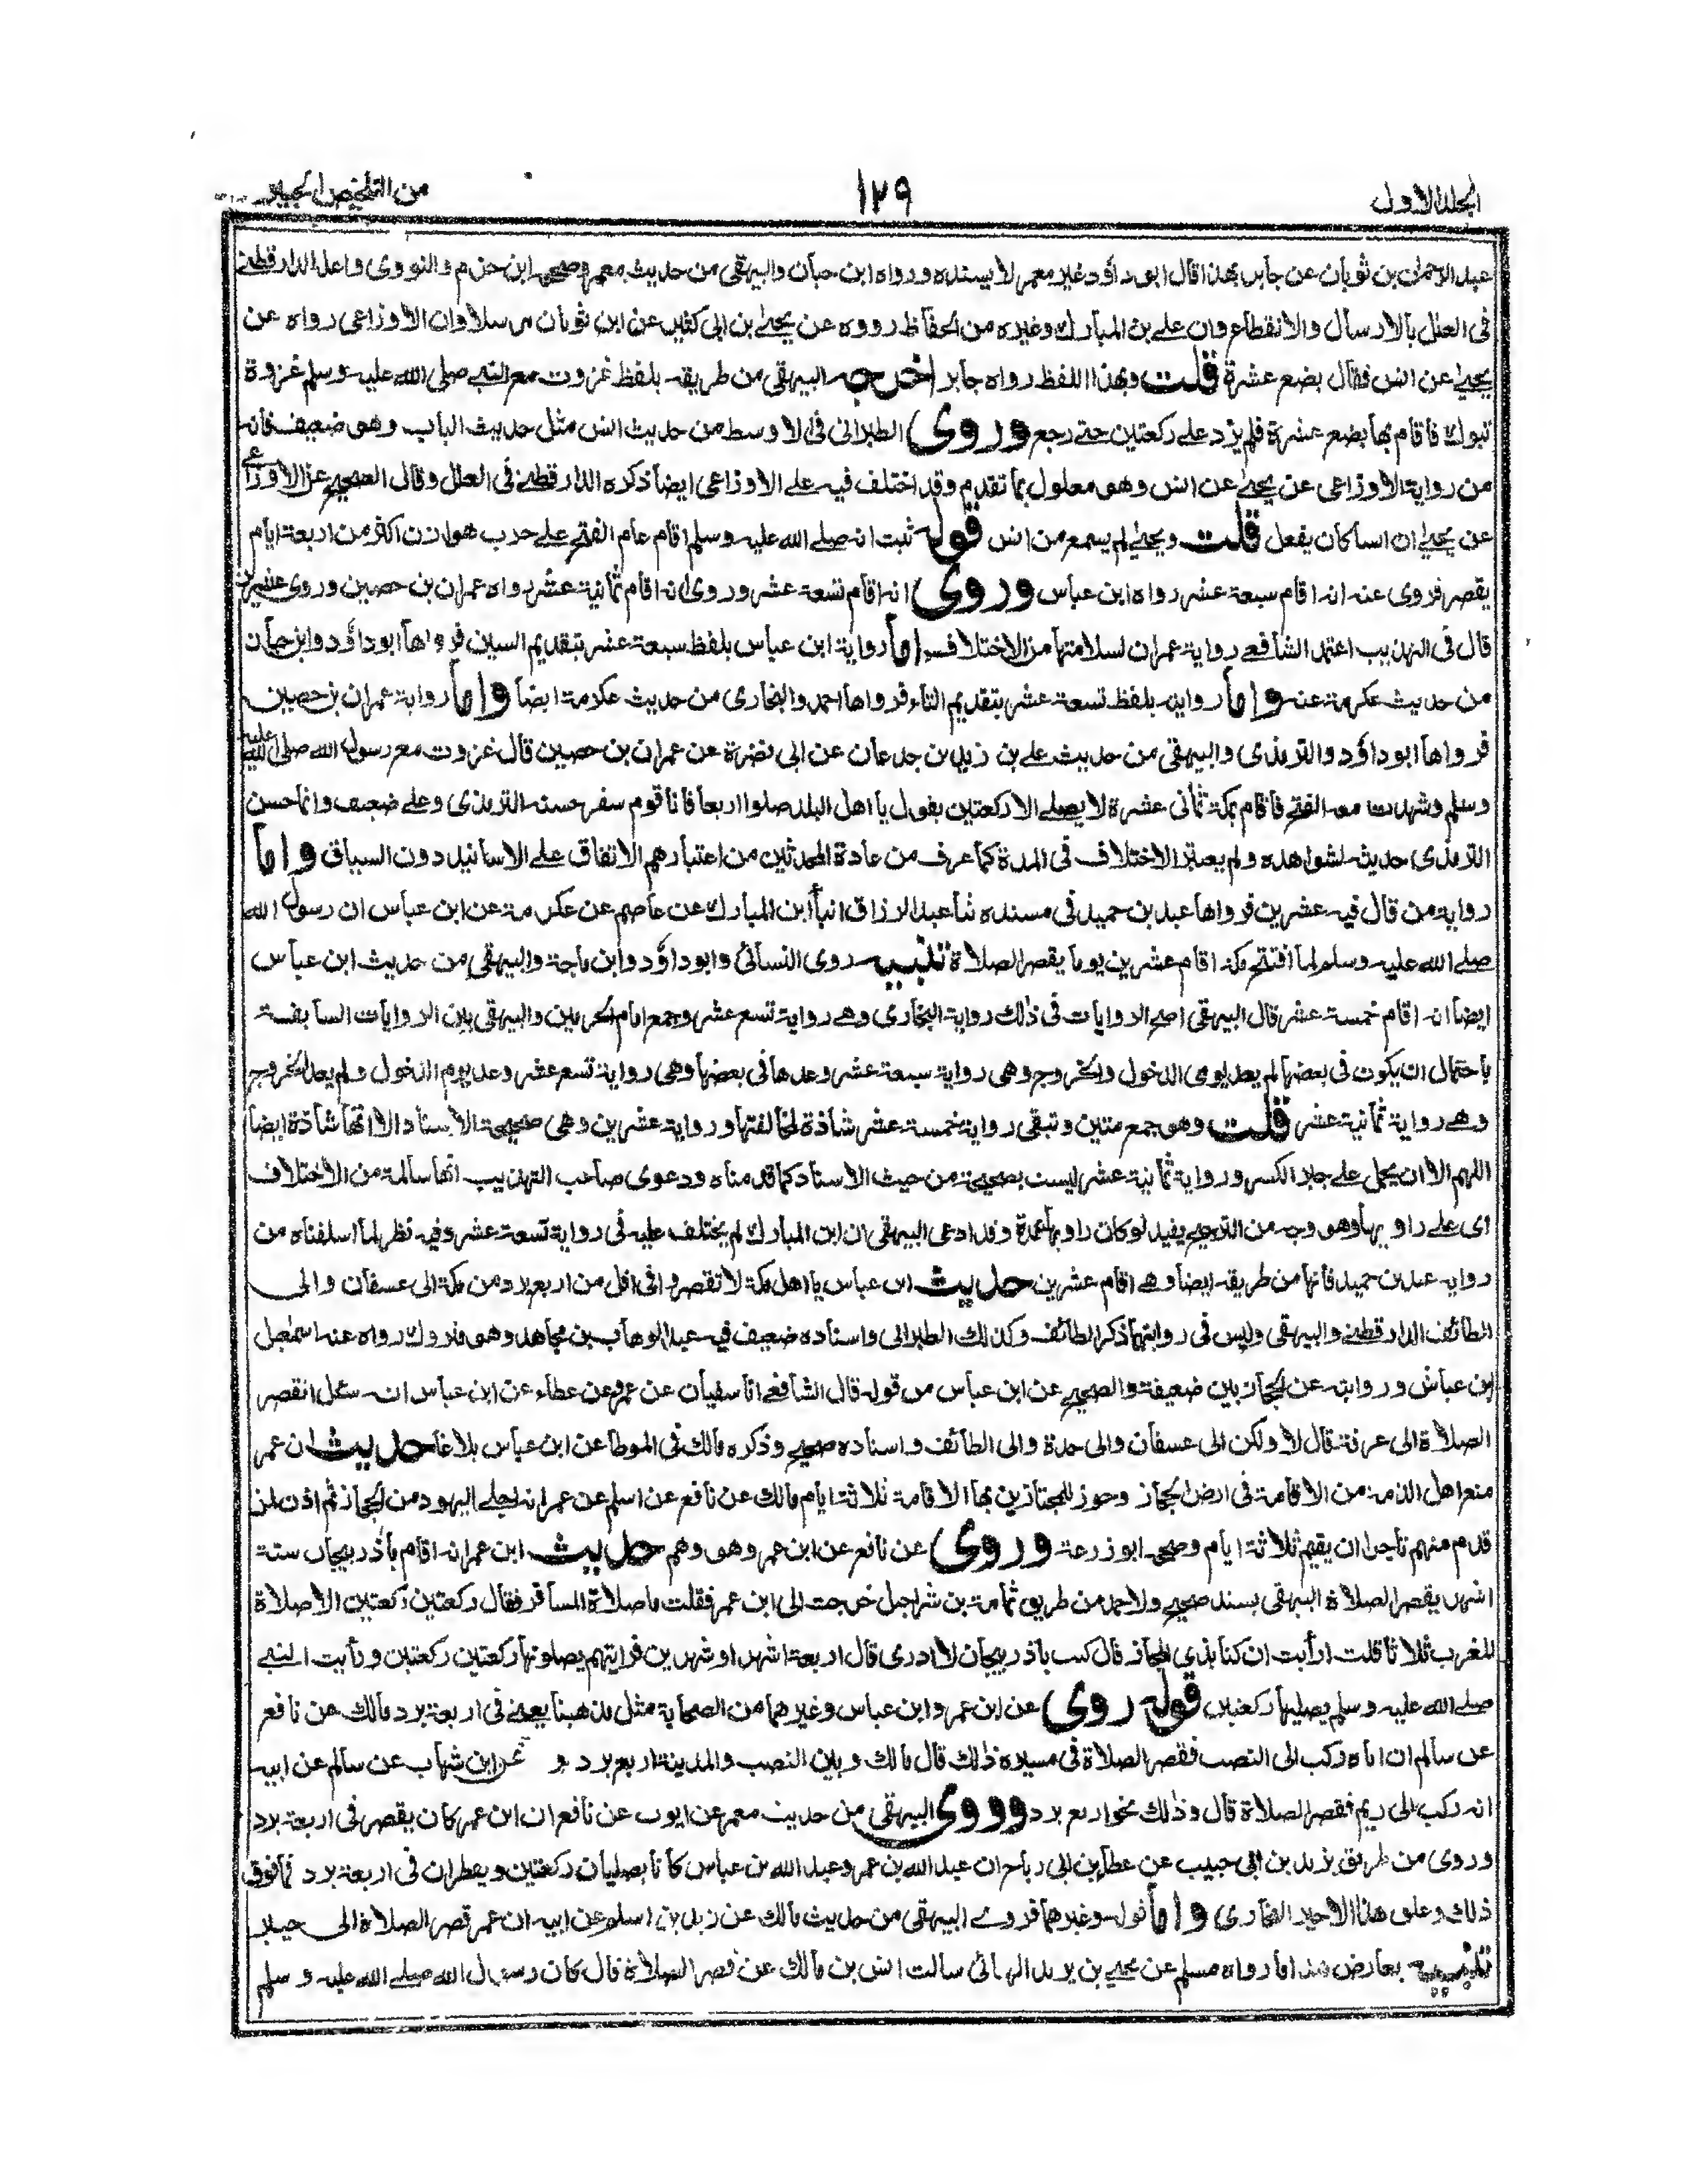 المجلد الاول
١٢٩
من التلخيص الحبير
عبد الرحمن بن ثوبان عن جابر بهذا قال ابو داؤد غير معمر لا يسنده ورواه ابن حبان والبيهقى من حديث معمر وصححه ابن حزم والنووى واعله الدارقطنے
فى العلل بالارسال والانقطاع وان علے بن المبارك وغيره من الحفاظ رووه عن يحيےٰ بن ابى كثير عن ابن ثوبان مرسلا وان الاوزاعى رواه عن
يحيےٰ عن انس فقال بضع عشرة قلت وبهذا اللفظ رواه جابر اخرجه البيهقى من طريقه بلفظ غزوت مع النبے صلى الله عليه وسلم غزوة
تبوك فاقام بها بضع عشرة فلم يزد علے ركعتين حتے رجع وروى الطبرانى فى الاوسط من حديث انس مثل حديث الباب وهو ضعيف فانه
من رواية الاوزاعى عن يحيےٰ عن انس وهو معلول بما تقدم وقد اختلف فيه علے الاوزاعى ايضا ذكره الدارقطنے فى العلل وقال الصحيح عن الاوزاعے
عن يحيےٰ ان انسا كان يفعل قلت ويحيےٰ لم يسمع من انس قوله ثبت انه صلے الله عليه وسلم اقام عام الفتح علے حرب هوازن اكثر من اربعة ايام
يقصر فروى عنه انه اقام سبعة عشر رواه ابن عباس وروى انه اقام تسعة عشر وروى انه اقام ثمانية عشر رواه عمران بن حصين وروى عشرين
قال فى التهذيب اعتمد الشافعے رواية عمران لسلامتها من الاختلاف اما رواية ابن عباس بلفظ سبعة عشر بتقديم السين فرواها ابو داؤد وابن حبان
من حديث عكرمة عنه واما روايته بلفظ تسعة عشر بتقديم التاء فرواها احمد والبخارى من حديث عكرمة ايضا واما رواية عمران بن حصين
فرواها ابو داؤد والترمذى والبيهقى من حديث علے بن زيد بن جدعان عن ابى نضرة عن عمران بن حصين قال غزوت مع رسول الله صلى الله عليه
وسلم وشهدت معه الفتح فاقام بمكة ثمانى عشرة لا يصلے الا ركعتين يقول يا اهل البلد صلوا اربعا فانا قوم سفر حسنه الترمذى وعلے ضعيف وانما حسن
الترمذى حديثه لشواهده ولم يعتبر الاختلاف فى المدة كما عرف من عادة المحدثين من اعتبارهم الاتفاق علے الاسانيد دون السياق واما
رواية من قال فيه عشرين فرواها عبد بن حميد فى مسنده ثنا عبد الرزاق انبأ ابن المبارك عن عاصم عن عكرمة عن ابن عباس ان رسول الله
صلے الله عليه وسلم لما افتتح مكة اقام عشرين يوما يقصر الصلاة تنبيه روى النسائى وابو داؤد وابن ماجة والبيهقى من حديث ابن عباس
ايضا انه اقام خمسة عشر قال البيهقى اصح الروايات فى ذلك رواية البخارى وهے رواية تسع عشر وجمع امام الحرمين والبيهقى بين الروايات السابقة
باحتمال ان يكون فى بعضها لم يعد يومى الدخول والخروج وهى رواية سبعة عشر وعدها فى بعضها وهى رواية تسع عشر وعد يوم الدخول ولم يعد الخروج
وهے رواية ثمانية عشر قلت وهو جمع متين وتبقى رواية خمسة عشر شاذة لمخالفتها ورواية عشرين وهى صحيحة الاسناد الا انها شاذة ايضا
اللهم الا ان يحمل علے جبر الكسر ورواية ثمانية عشر ليست بصحيحة من حيث الاسناد كما قدمناه ودعوى صاحب التهذيب انها سالمة من الاختلاف
اى علے راويها وهو وجه من الترجيح يفيد لو كان راويها عمدة وقد ادعى البيهقى ان ابن المبارك لم يختلف عليه فى رواية تسعة عشر وفيه نظر لما اسلفناه من
رواية عبد بن حميد فانها من طريقه ايضا وهے اقام عشرين حديث ابن عباس يا اهل مكة لا تقصروا فى اقل من اربع برد من مكة الى عسفان والى
الطائف الدارقطنے والبيهقى وليس فى روايتهما ذكر الطائف وكذلك الطبرانى واسناده ضعيف فيه عبد الوهاب بن مجاهد وهو متروك رواه عنه اسمعيل
ابن عياش وروايته عن الحجازيين ضعيفة والصحيح عن ابن عباس من قوله قال الشافعے انا سفيان عن عمرو عن عطاء عن ابن عباس انه سئل انقصر
الصلاة الى عرفة قال لا ولكن الى عسفان والى جدة والى الطائف واسناده صحيح وذكره مالك فى الموطا عن ابن عباس بلاغا حديث ان عمر
منع اهل الذمة من الاقامة فى ارض الحجاز وجوز للمجتازين بها الاقامة ثلاثة ايام مالك عن نافع عن اسلم عن عمر انه اجلے اليهود من الحجاز ثم اذن لمن
قدم منهم تاجرا ان يقيم ثلاثة ايام وصححه ابو زرعة وروى عن نافع عن ابن عمر وهو وهم حديث ابن عمر انه اقام باذربيجان ستة
اشهر يقصر الصلاة البيهقى بسند صحيح ولاحمد من طريق ثمامة بن شراحيل خرجت الى ابن عمر فقلت ما صلاة المسافر فقال ركعتين ركعتين الا صلاة
المغرب ثلاثا قلت ارأيت ان كنا بذى المجاز قال كنت باذربيجان لا ادرى قال اربعة اشهر او شهرين فرايتهم يصلونها ركعتين ركعتين ورأيت النبے
صلے الله عليه وسلم يصليها ركعتين قوله روى عن ابن عمر وابن عباس وغيرهما من الصحابة مثل مذهبنا يعنے فى اربعة برد مالك عن نافع
عن سالم ان اباه ركب الى النصب فقصر الصلاة فى مسيره ذلك قال مالك وبين النصب والمدينة اربع برد و عن ابن شهاب عن سالم عن ابيه
انه ركب الى ريم فقصر الصلاة قال وذلك نحو اربع برد وروى البيهقى من حديث معمر عن ايوب عن نافع ان ابن عمر كان يقصر فى اربعة برد
وروى من طريق يزيد بن ابى حبيب عن عطاء بن ابى رباح ان عبد الله بن عمر وعبد الله بن عباس كانا يصليان ركعتين ويفطران فى اربعة برد فما فوق
ذلك وعلق هذا الاخير البخارى واما قوله وغيرهما فروے البيهقى من حديث مالك عن زيد بن اسلم عن ابيه ان عمر قصر الصلاة الى خيبر
تنبيه يعارض هذا ما رواه مسلم عن يحيے بن يزيد الهنائى سالت انس بن مالك عن قصر الصلاة قال كان رسول الله صلے الله عليه وسلم